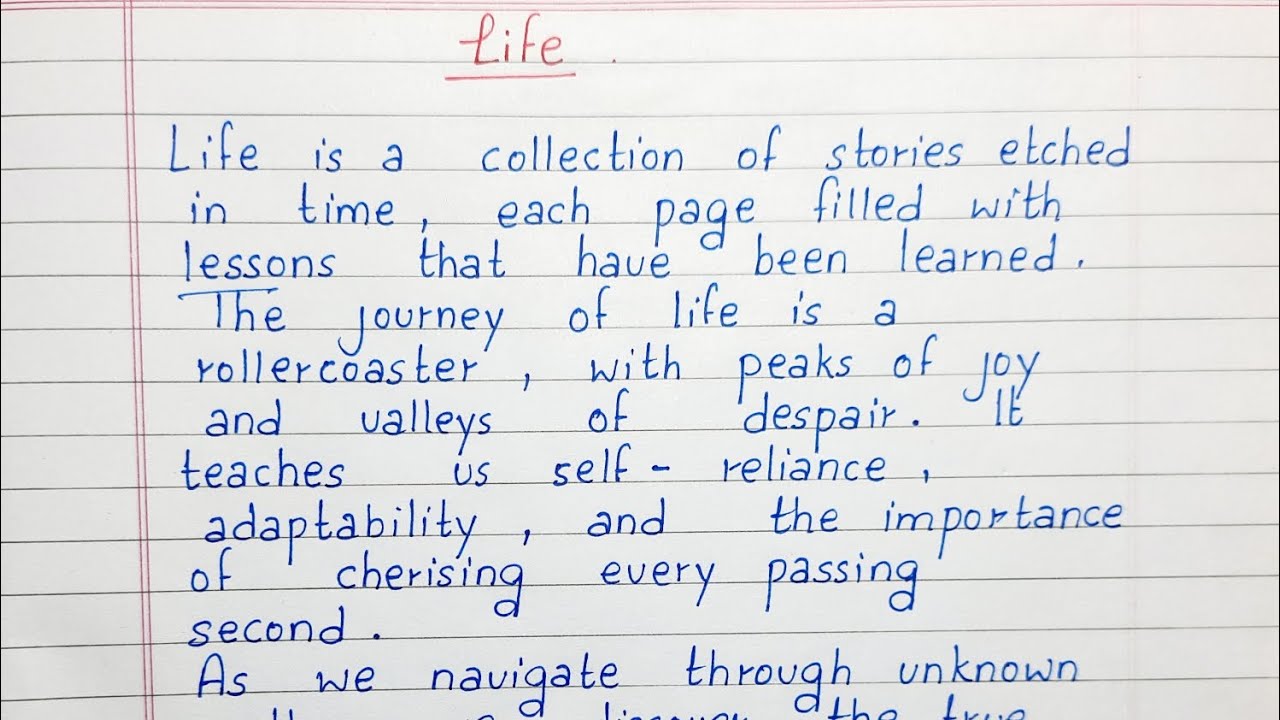 Life
Life is a collection of stories etched
in time, each page filled with
lessons that have been learned.
The journey of life is a
rollercoaster, with peaks of joy
and valleys of despair. It
teaches us self-reliance,
adaptability, and the importance
of cherising every passing
second.
As we navigate through unknown
the true